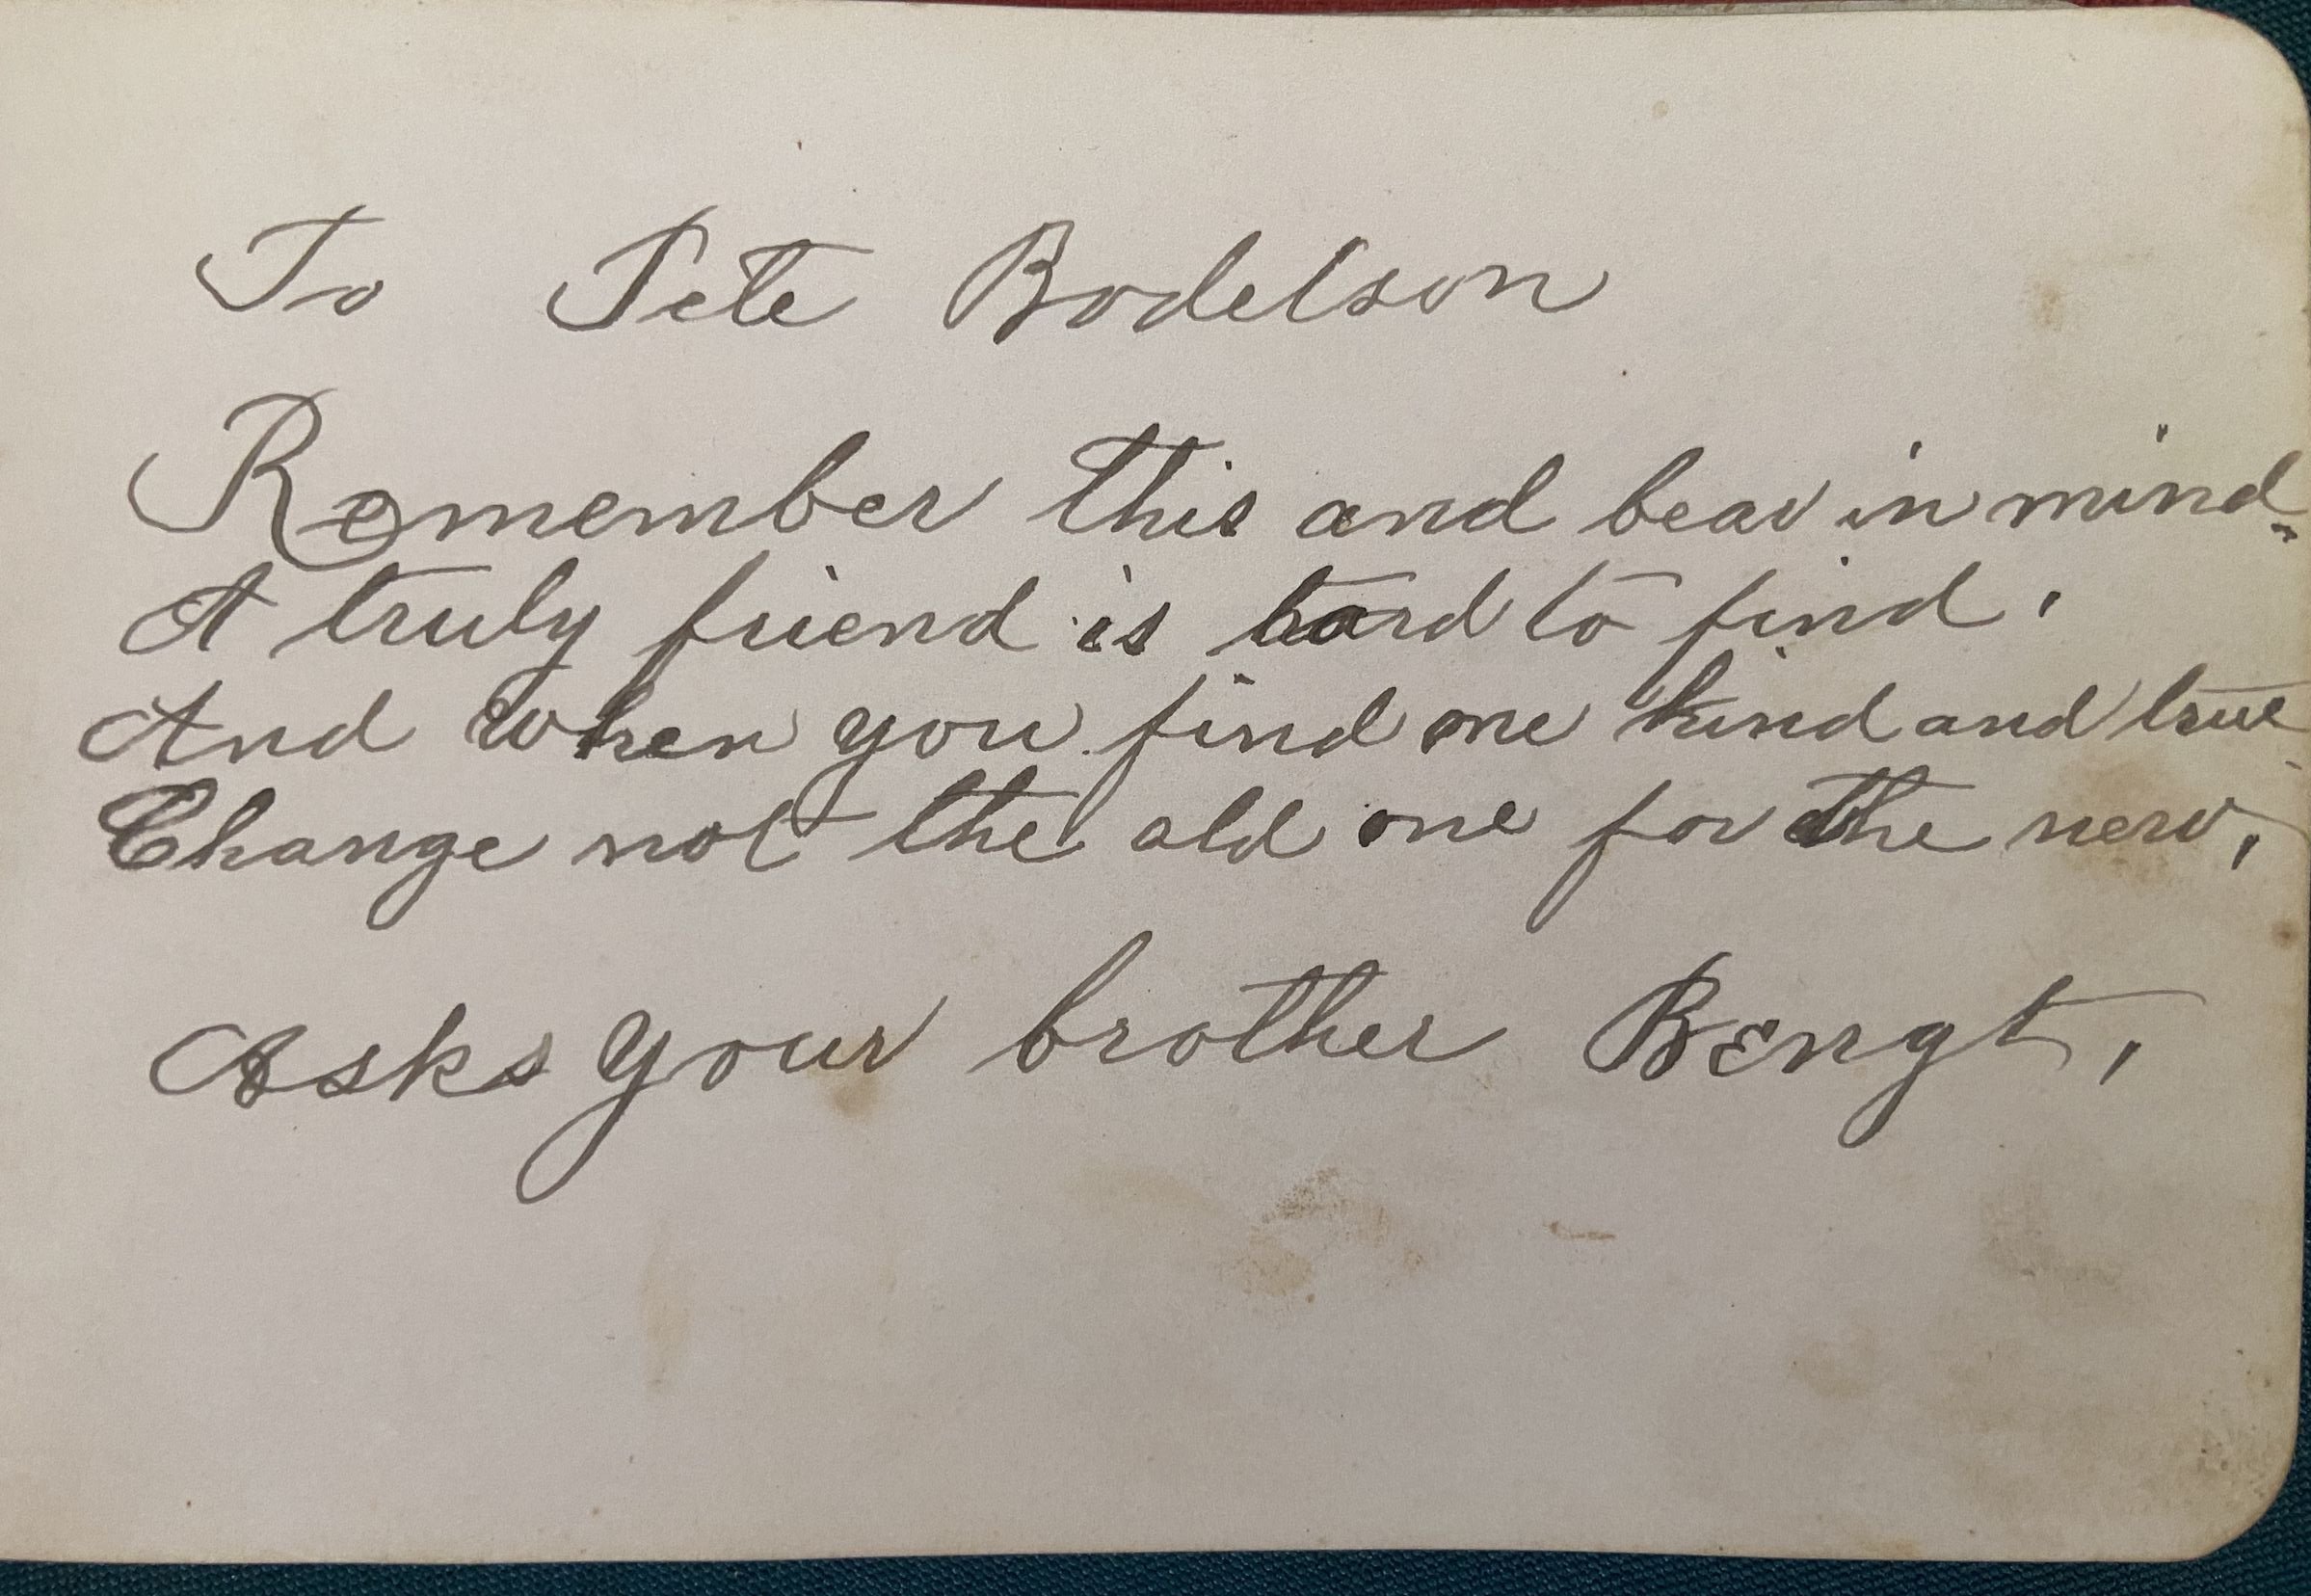 To Pete Bodelson
Remember this and bear in mind.
A truly friend is hard to find.
And when you find one kind and true
Change not the old one for the new,
Asks your brother Bengt,